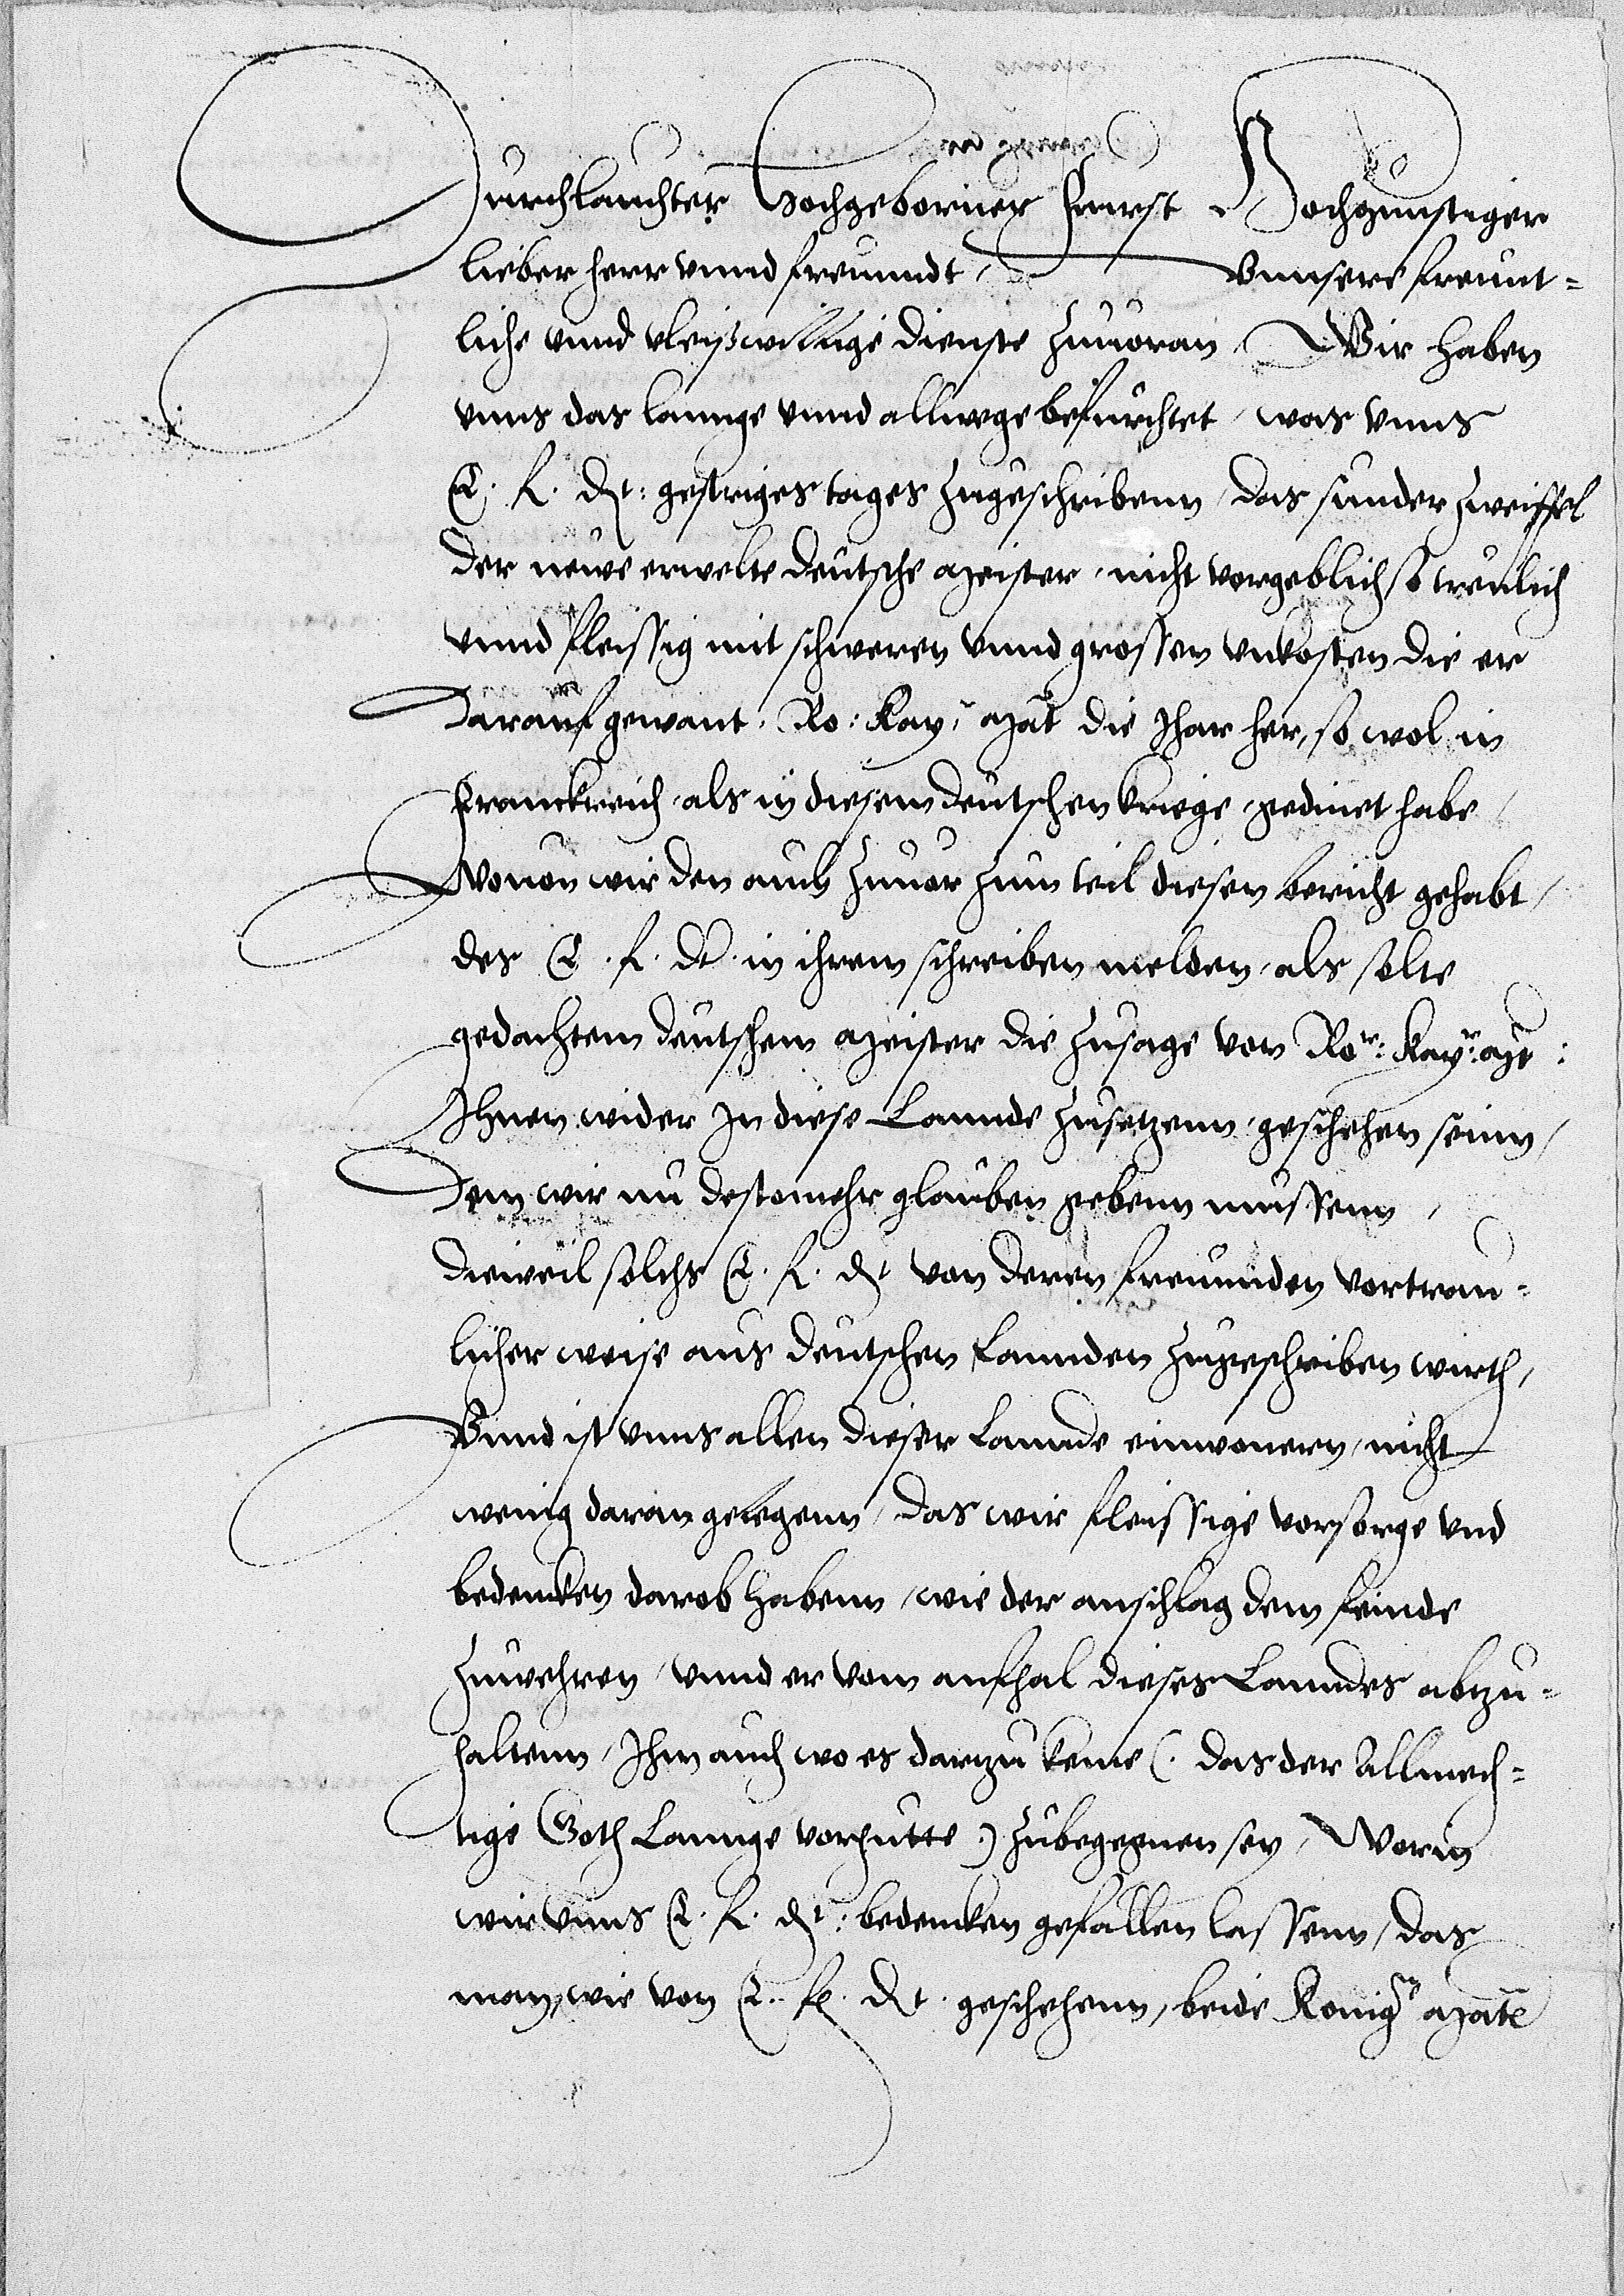 Durchlauchter Hochgeborner Furst Hochgunstiger
lieber herr vnnd freunndt, Vnnsere freunt-
liche vnnd vleißwillige dienste zuuoran, Wir haben
vnns das lannge vnnd allwege befurchtet, was vnns
E. f. dt: gestriges tages zugeschribenn, das sunder zweiffel
der newe erwelte deutsche Meister, nicht vorgeblich so treulich
vnnd fleissig mit schweren vnnd grossen vnkosten die er
darauf gewant, Ro: Kay: Mat die Jhar her, so wol in
Franckreich, als in diesem deutschen kriege, gedinet habe,
Wouon wir den auch zuuor zum teil diesen bericht gehabt,
des E. f. dt. in ihrem schreiben melden, als solte
gedachtem deutschem Meister die zusage von Ror: Kayr: Mt:
Ihnen wider in diese Lannde zusetzenn, geschehen seinn,
Dem wir nu destomehr glauben gebenn mussenn,
dieweil solchs E. f. dt von deren freunnden vortrau-
licher weise aus deutschen Lannden zugeschriben wirth,
Vnnd ist vnns allen dieser Lannde einwonern, nicht
wenig daran gelegenn, das wir fleissige vorsorge vnd
bedencken darob habenn, wie der anschlag dem feinde
zuwehren, vnnd er vom anfhal dieses Lanndes abzu-
haltenn, Ihm auch wo es darzu keme (. das der Allmech-
tige Goth Lannge vorhutte .) zubegegnen sey, Worin
wir vnns E. f. dt: bedencken gefallen lassenn, das
man, wie von E. f. dt. geschehenn, beide Konig Mate